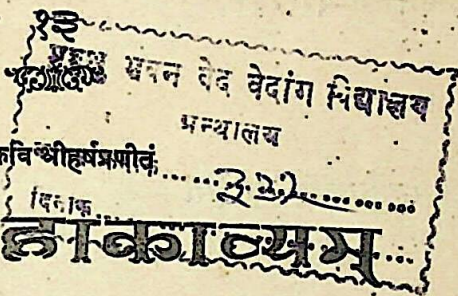 १३
भवन वेद वेदांग विद्यालय
ग्रन्थालय
कवि श्रीहर्षप्रणीतं
दिनांक
हाकाव्यम्